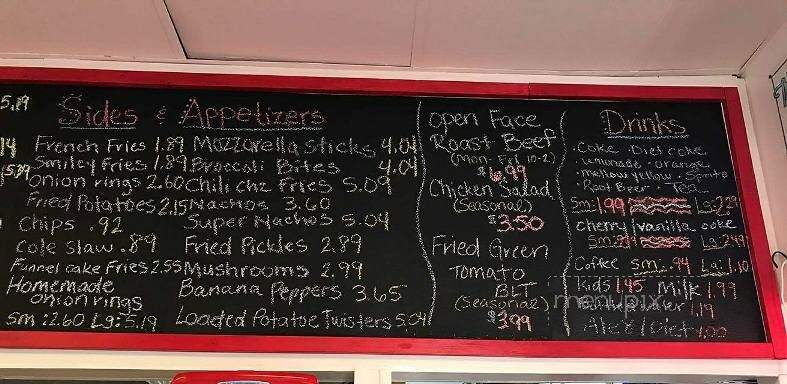 5.19
14
5.39
Sides & Appetizers
French Fries 1.89
Smiley Fries 1.89
Onion rings 2.60
Fried Potatoes 2.15
Chips .92
Cole slaw .89
Funnel cake Fries 2.55
Homemade
onion rings
Sm:2.60 Lg:5.19
Mozzarella Sticks 4.04
Broccoli Bites 4.04
Chili chz fries 5.09
Nachos 3.60
Super Nachos 5.04
Fried Pickles 2.89
Mushrooms 2.99
Banana Peppers 3.65
Loaded Potatoe Twisters 5.04
Open Face
Roast Beef
(Mon-Fri 10-2)
$6.99
Chicken Salad
(Seasonal)
$3.50
Fried Green
Tomato
BLT
(Seasonal)
$3.99
Drinks
·Coke ·Diet coke
·Lemonade ·orange
·mellow yellow ·Sprite
·Root Beer ·Tea
Sm:1.99 Lg:2.29
cherry/vanilla coke
Sm: Lg:2.49
Coffee Sm:.94 La:1.10
Kids 1.45 Milk 1.99
1.19
Ale8/Diet 1.00
menupix